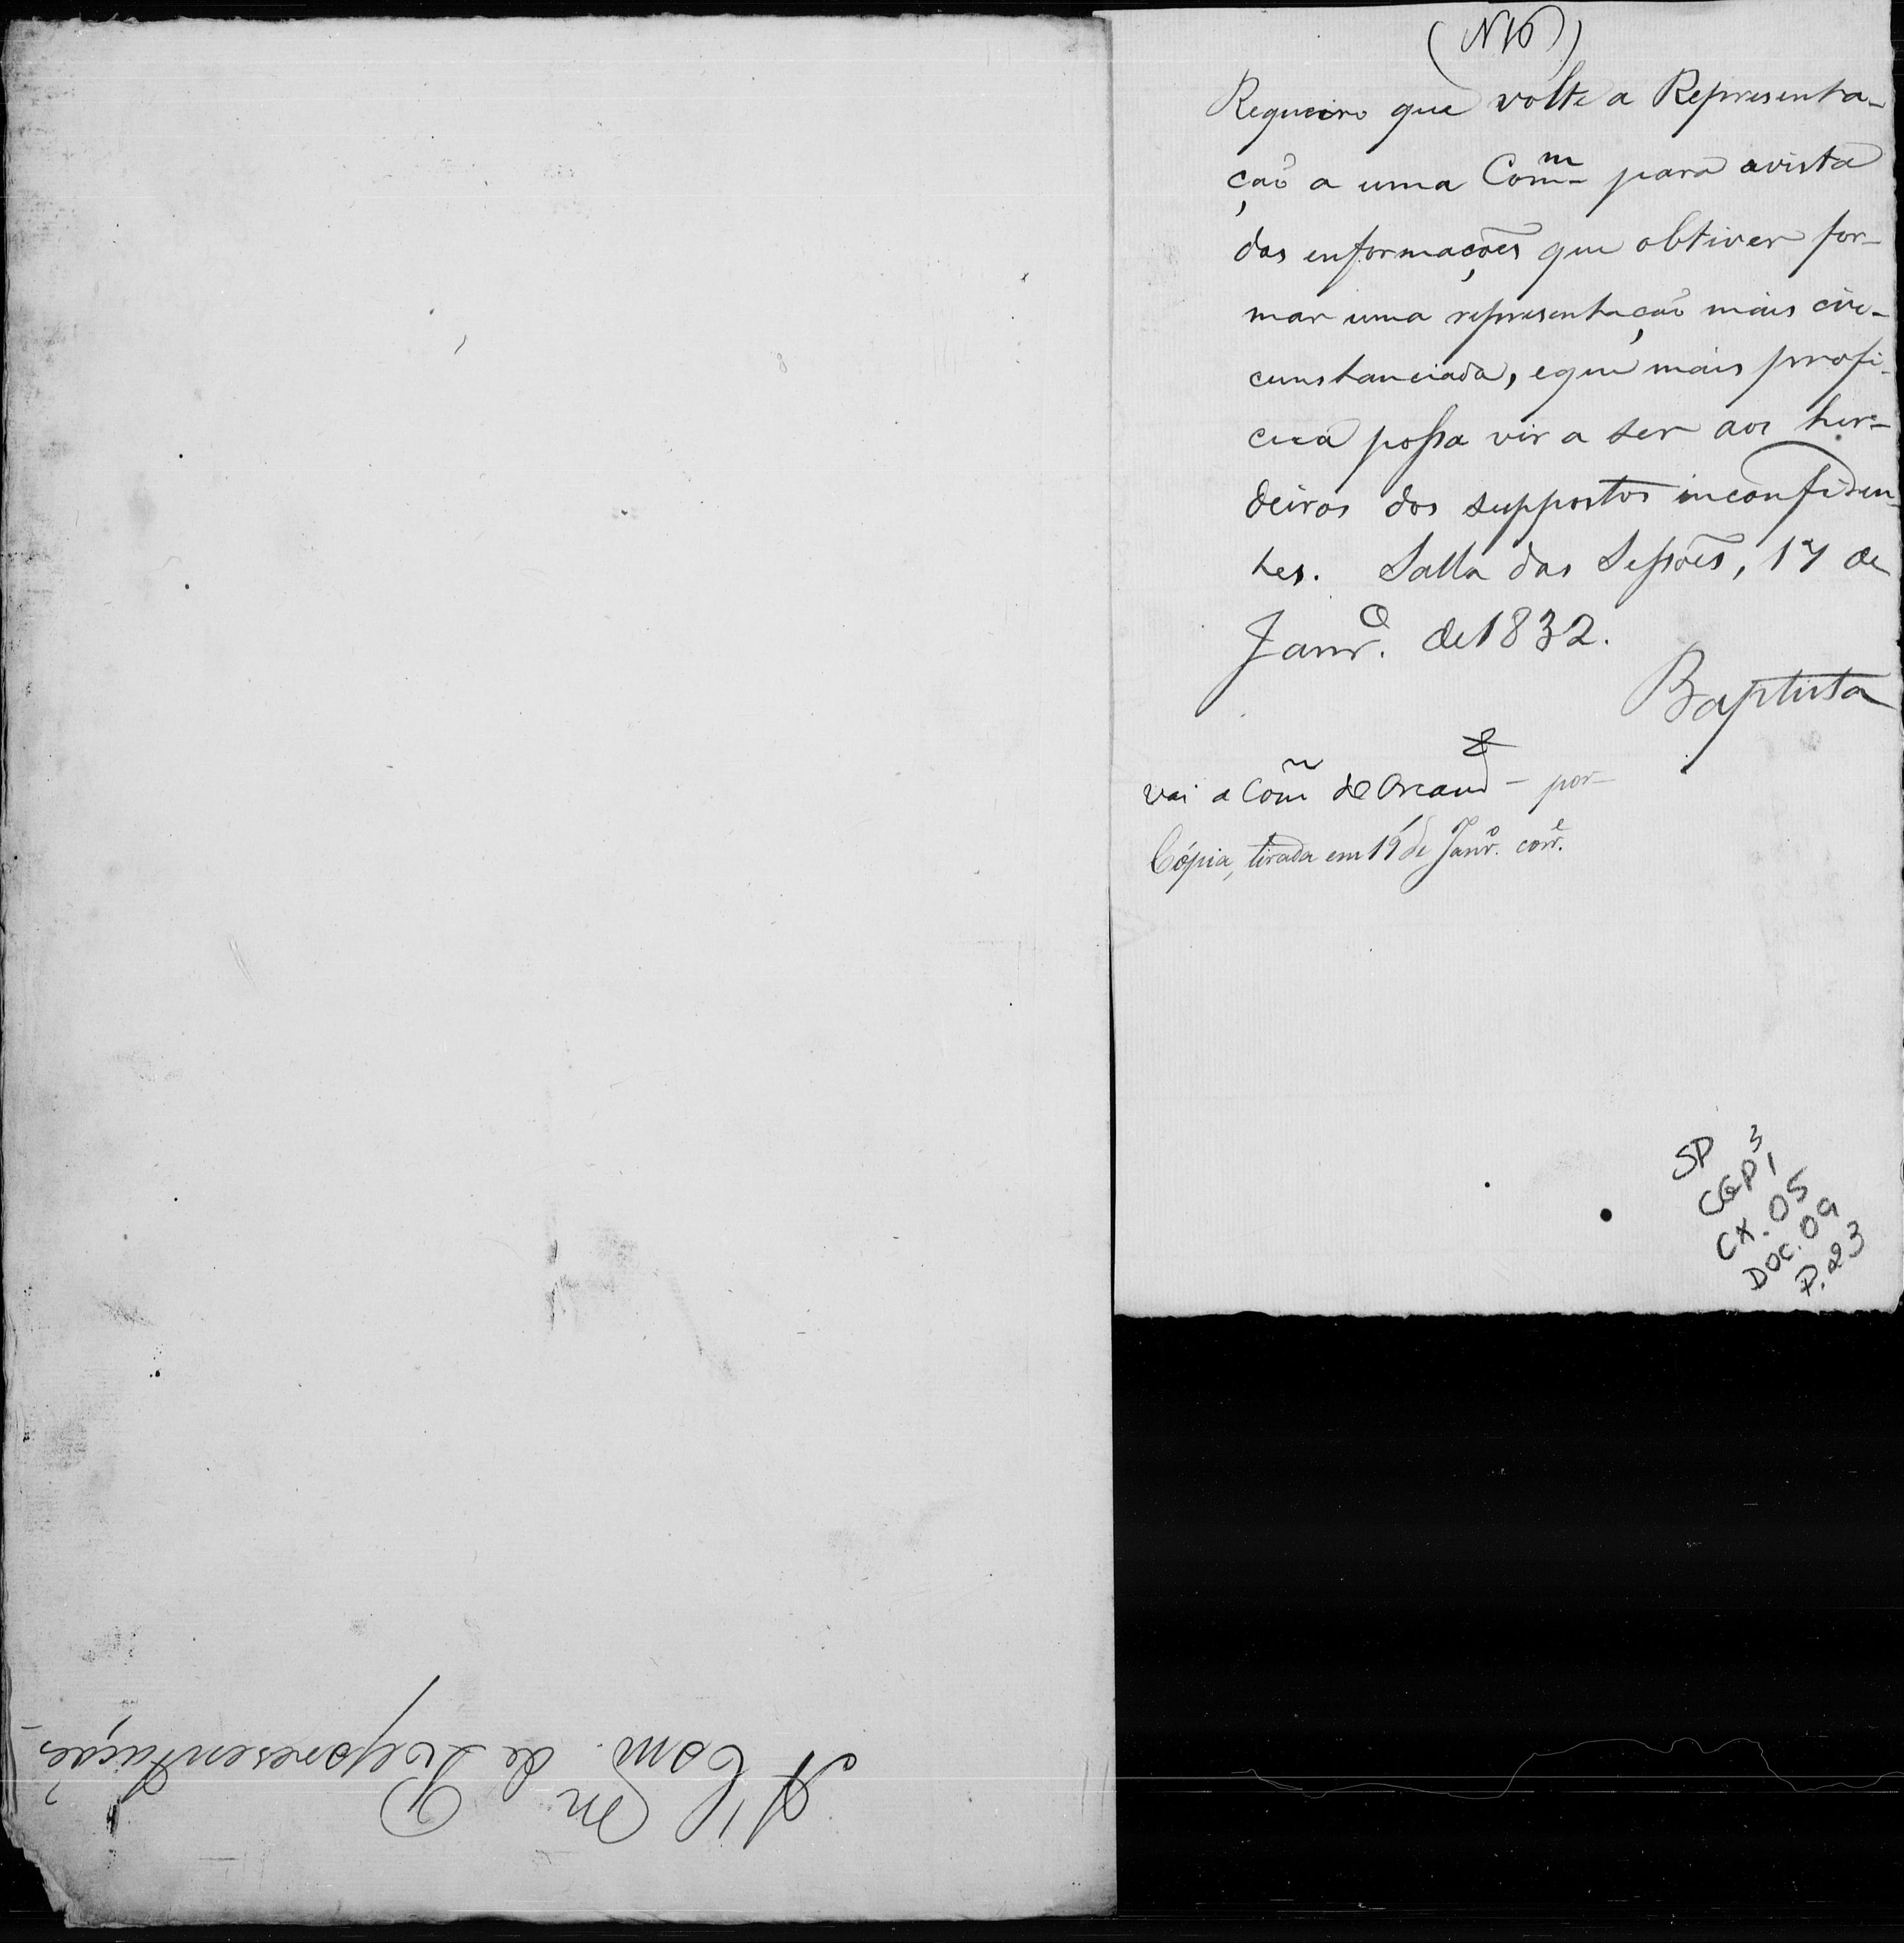 (N10)
Requeiro que volte a Representa-
ção a uma Com.m para avista
das enformações que obtiver for-
mar uma representação mais cir-
cunstanciada, eque mais profi-
cua possa vir a ser aos her-
deiros dos suppostos inconfiden-
tes. Salla das Sessões, 17 de
Janr.o de 1832.
Baptista
Vai a Com - por
Cópia, tirada em 19 de Janr.o corr.e
SP
CGP 1 3
CX. 05
DOC. 09
P. 23
A' Com.m de Representação